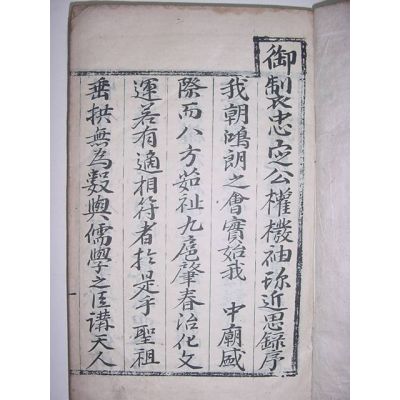 御製忠定公權橃袖珍近思錄序
我朝鴻朗之會實始我 中廟盛
際而八方茹祉九扈肇春治化文
運若有適相符者於是乎 聖祖
垂拱無為數輿儒學之臣講天人